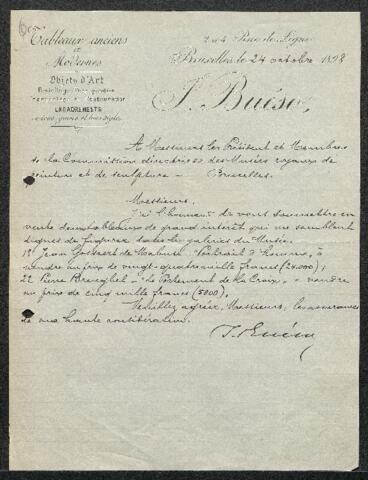 Tableaux anciens
et
Modernes
Objets d'Art
ENCADREMENTS
2 & 4 Rue de Ligne
Bruxelles, le 24 octobre 1898
J. Buéso
A Messieurs les Président et Membres
de la Commission directrice des Musées royaux de
peinture et de sculpture - Bruxelles.
Messieurs,
J'ai l'honneur de vous soumettre en
vente deux tableaux de grand intérêt qui me semblent
dignes de figurer dans les galeries du Musée.
1° Jean Gossaert de Maubeuge Portrait d'homme, à
vendre au prix de vingt-quatre mille francs (24000);
2° Pierre Breughel - "Le Portement de la Croix" à vendre
au prix de cinq mille francs (5000).
Veuillez agréer, Messieurs, les assurances
de ma haute considération.
J. Buéso